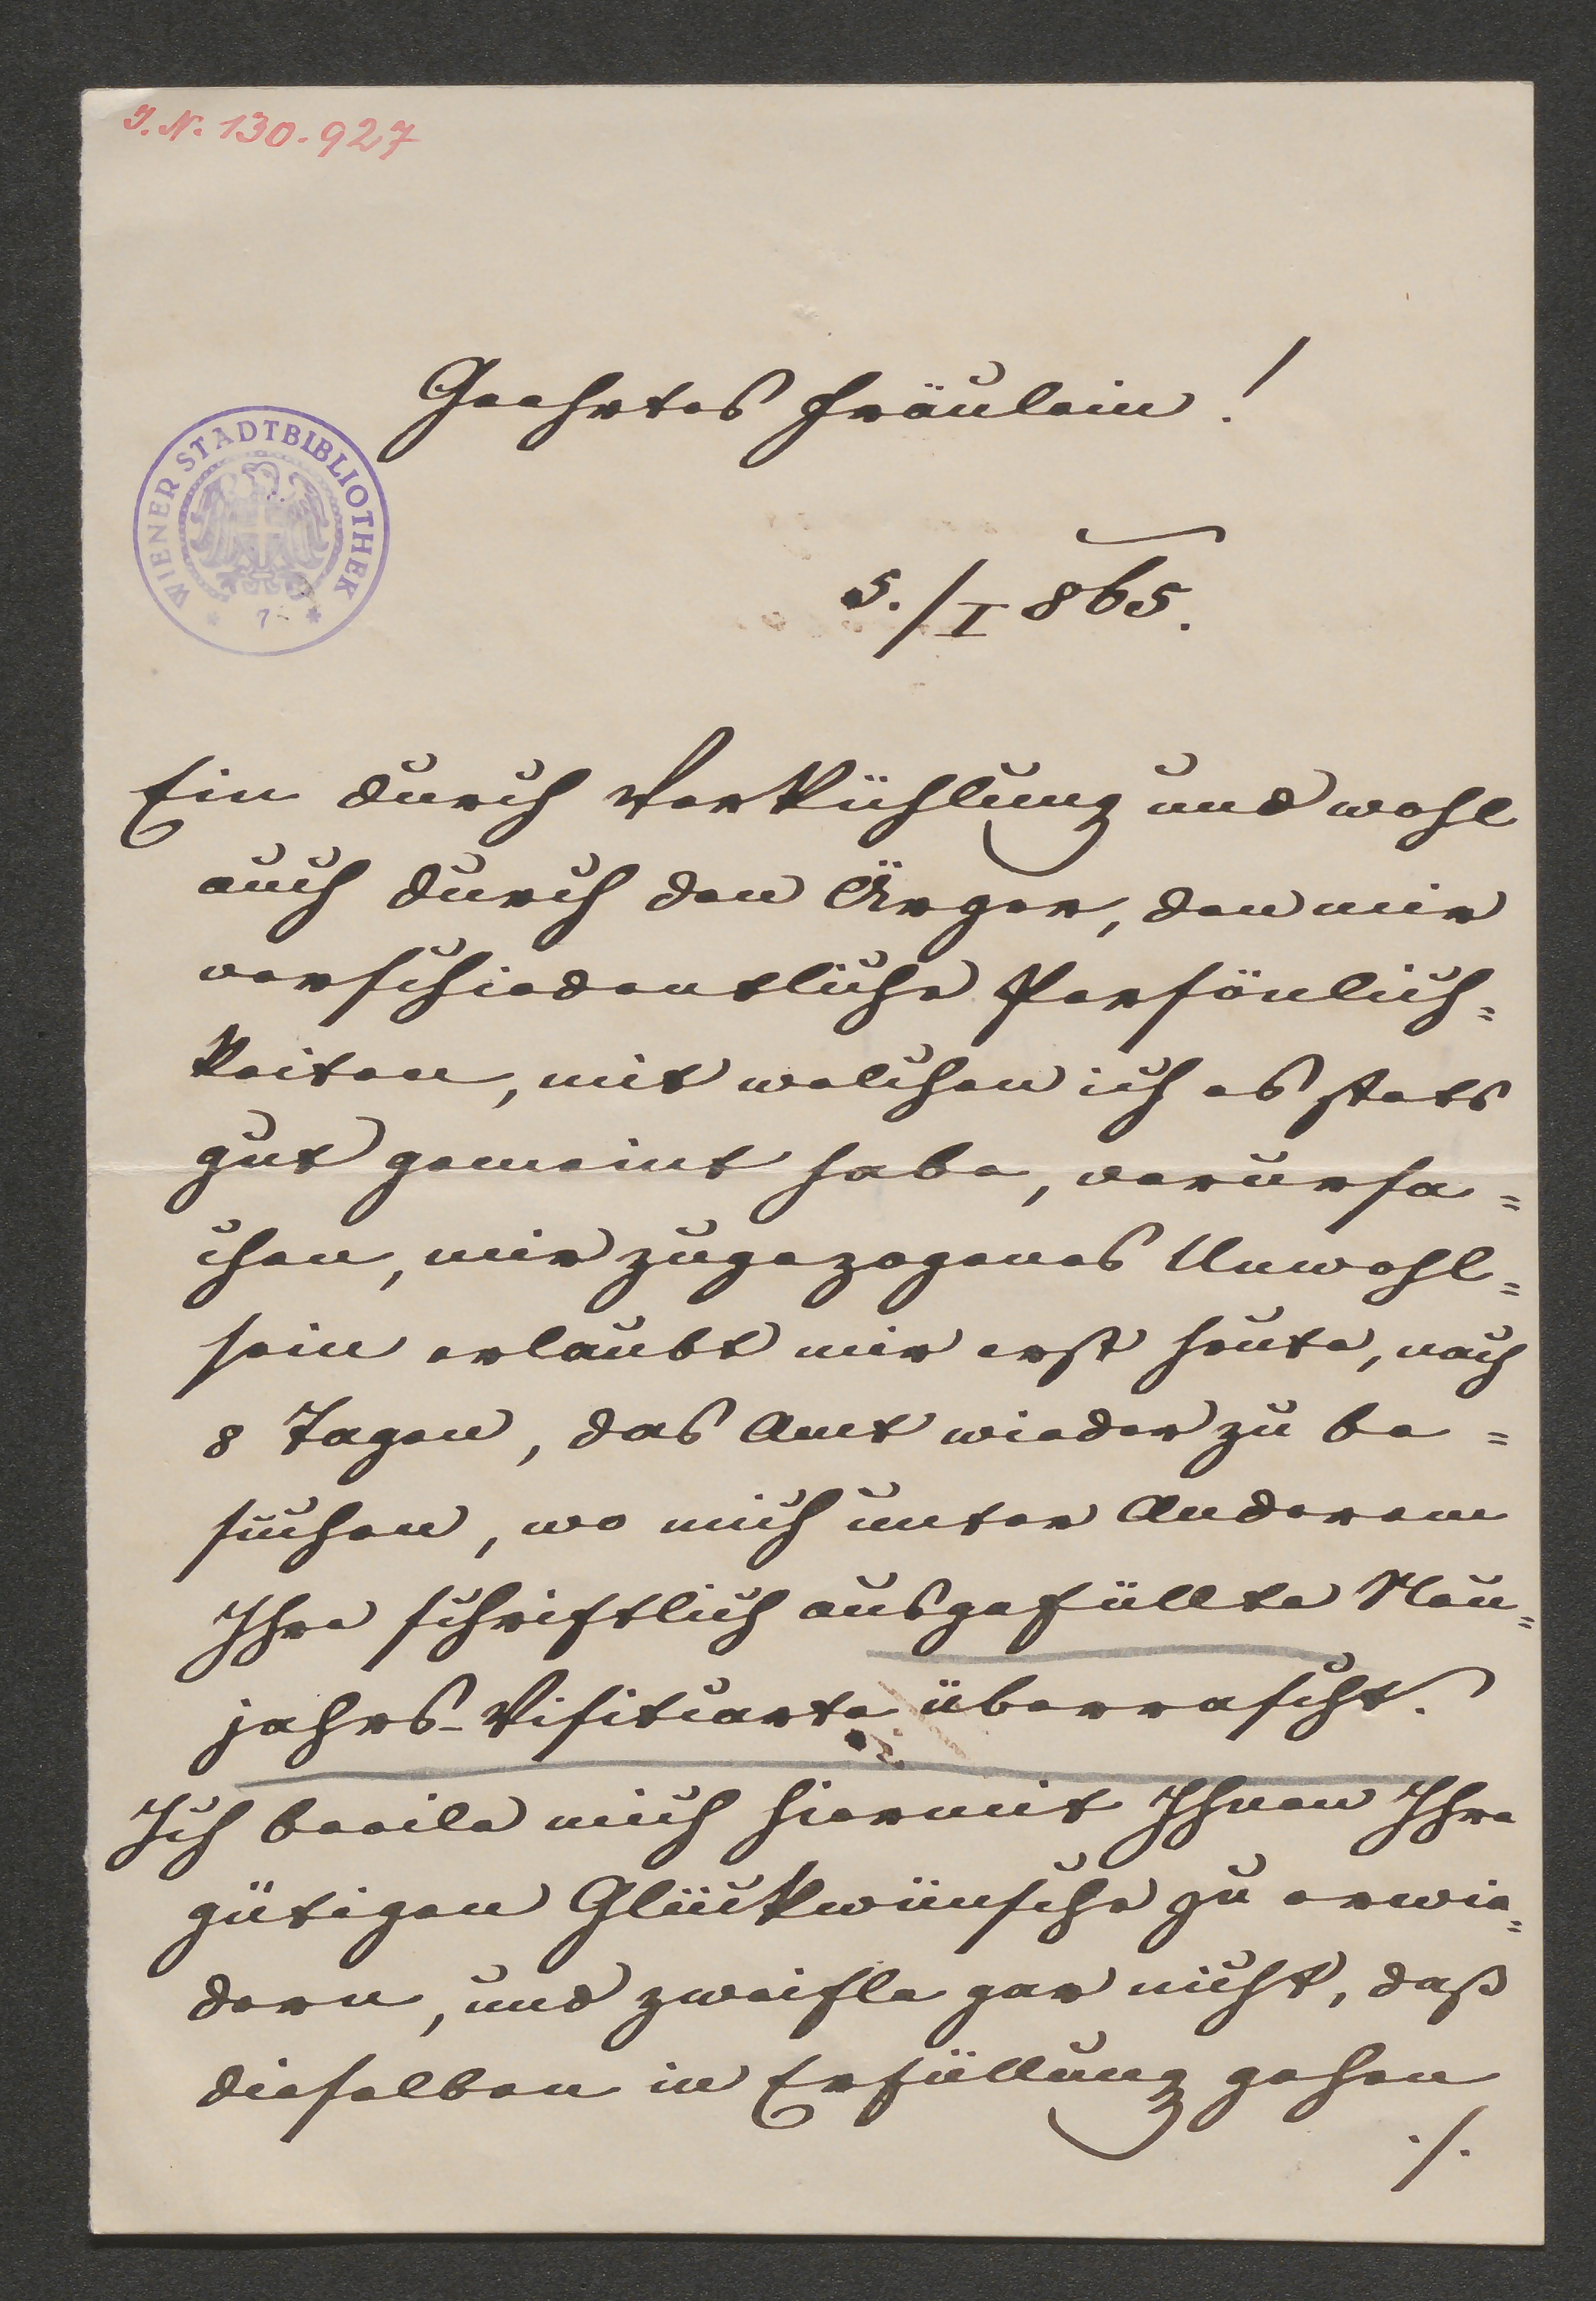 I.N. 130.927
Geehrtes Fräulein!
WIENER STADTBIBLIOTHEK
5./I 865.
Ein durch Verkühlung und wohl
auch durch den Ärger, den mir
verschiedentliche Persönlich=
keiten, mit welchen ich es stets
gut gemeint habe, verursa=
chen, mir zugezogenes Unwohl=
sein erlaubt mir erst heute, nach
8 Tagen, das Amt wieder zu be=
suchen, wo mich unter Anderem
Ihre schriftlich ausgefüllte Neu=
jahrs-Visitcarte überrascht.
Ich beeile mich hiermit Ihnen Ihre
gütigen Glückwünsche zu erwie=
dern, und zweifle gar nicht, daß
dieselben in Erfüllung gehen
./.